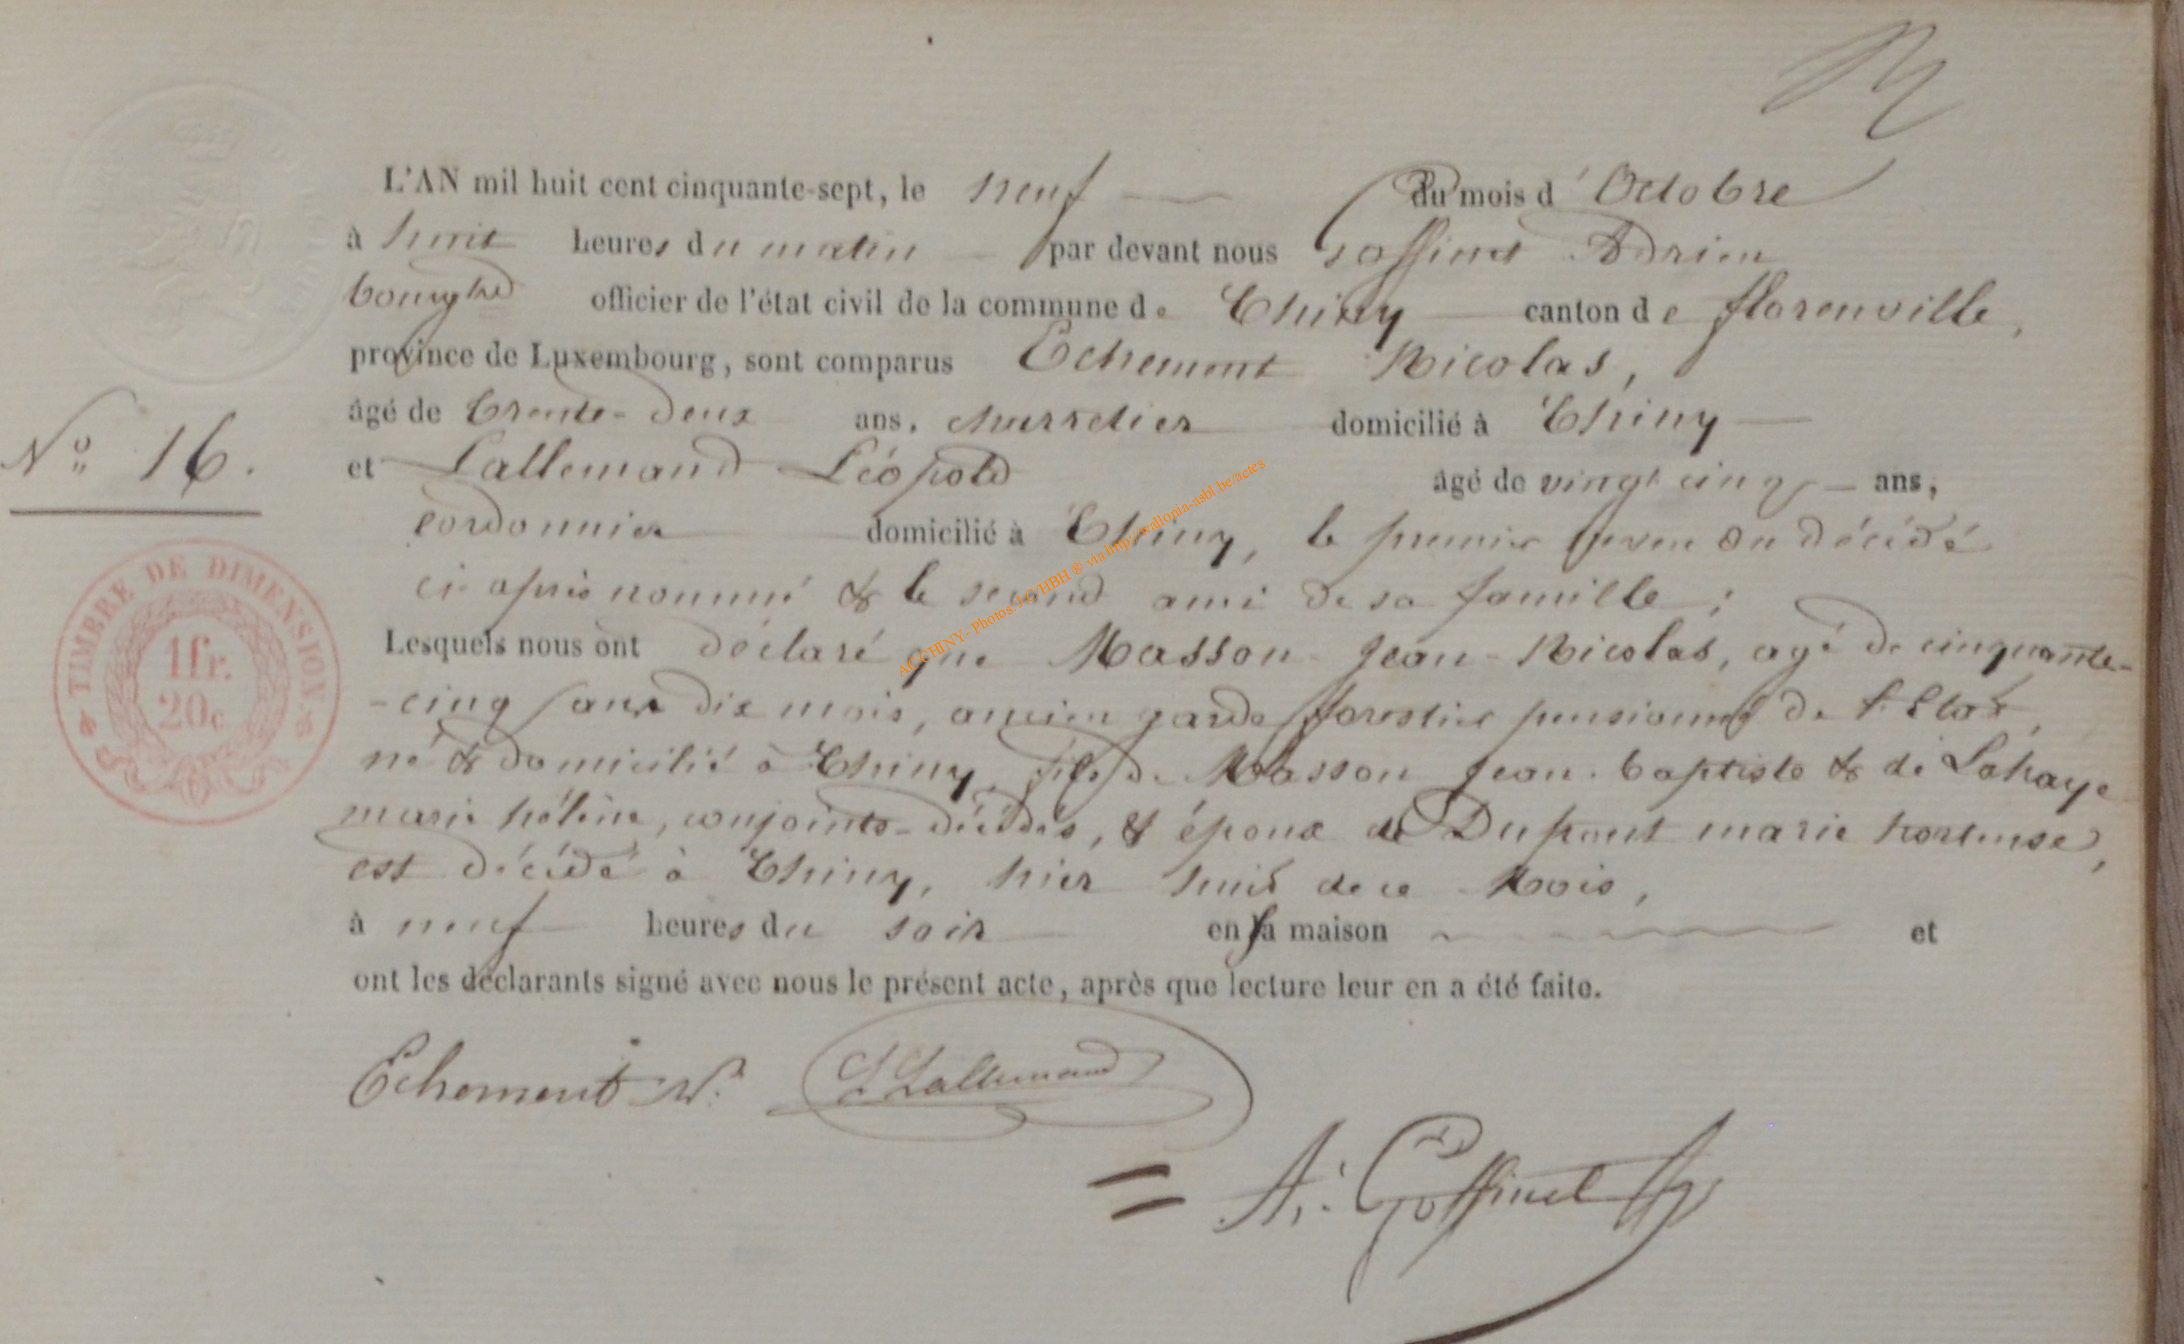 L'AN mil huit cent cinquante-sept, le neuf du mois d'Octobre
à huit heures du matin par devant nous Goffinet Adrien
bourgtre officier de l'état civil de la commune de Chiny canton de florenville,
province de Luxembourg, sont comparus Echement Nicolas,
âgé de trente-deux ans, charretier domicilié à Chiny
et Lallemand Léopold âgé de vingt cinq ans,
N° 16.
cordonnier domicilié à Chiny, le premier du décédé
ci après nommé & le second ami de sa famille ;
Lesquels nous ont déclaré que Masson Jean-Nicolas, agé de cinquante-
-cinq ans dix mois, ancien garde forestier pensionné de l'Etat,
né & domicilié à Chiny, fils de Masson Jean-baptiste & de Lahaye
marie hélène, conjoints-décédés, & époux de Dupont marie hortense,
est décédé à Chiny, hier huit de ce Mois,
à neuf heures du soir en sa maison et
ont les déclarants signé avec nous le présent acte, après que lecture leur en a été faite.
Echement N. L Lallemand
A. Goffinet
TIMBRE DE DIMENSION
1fr.
20c
AC CHINY - Photos J-C HBH ® via http://wallonia-asbl.be/actes